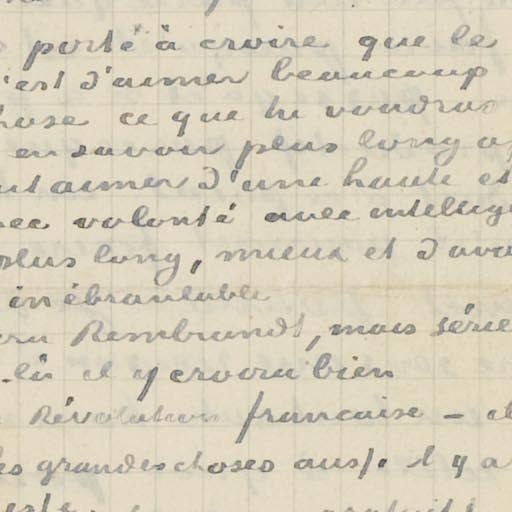 porté à croire que le
c'est d'aimer beaucoup
chose ce que tu voudras
en savoir plus long
aimer d'une haute et
volonté avec
plus long, mieux et
inébranlable
Rembrandt, mais
là il y croira bien
Révolution française –
les grandes choses aussi. il y a